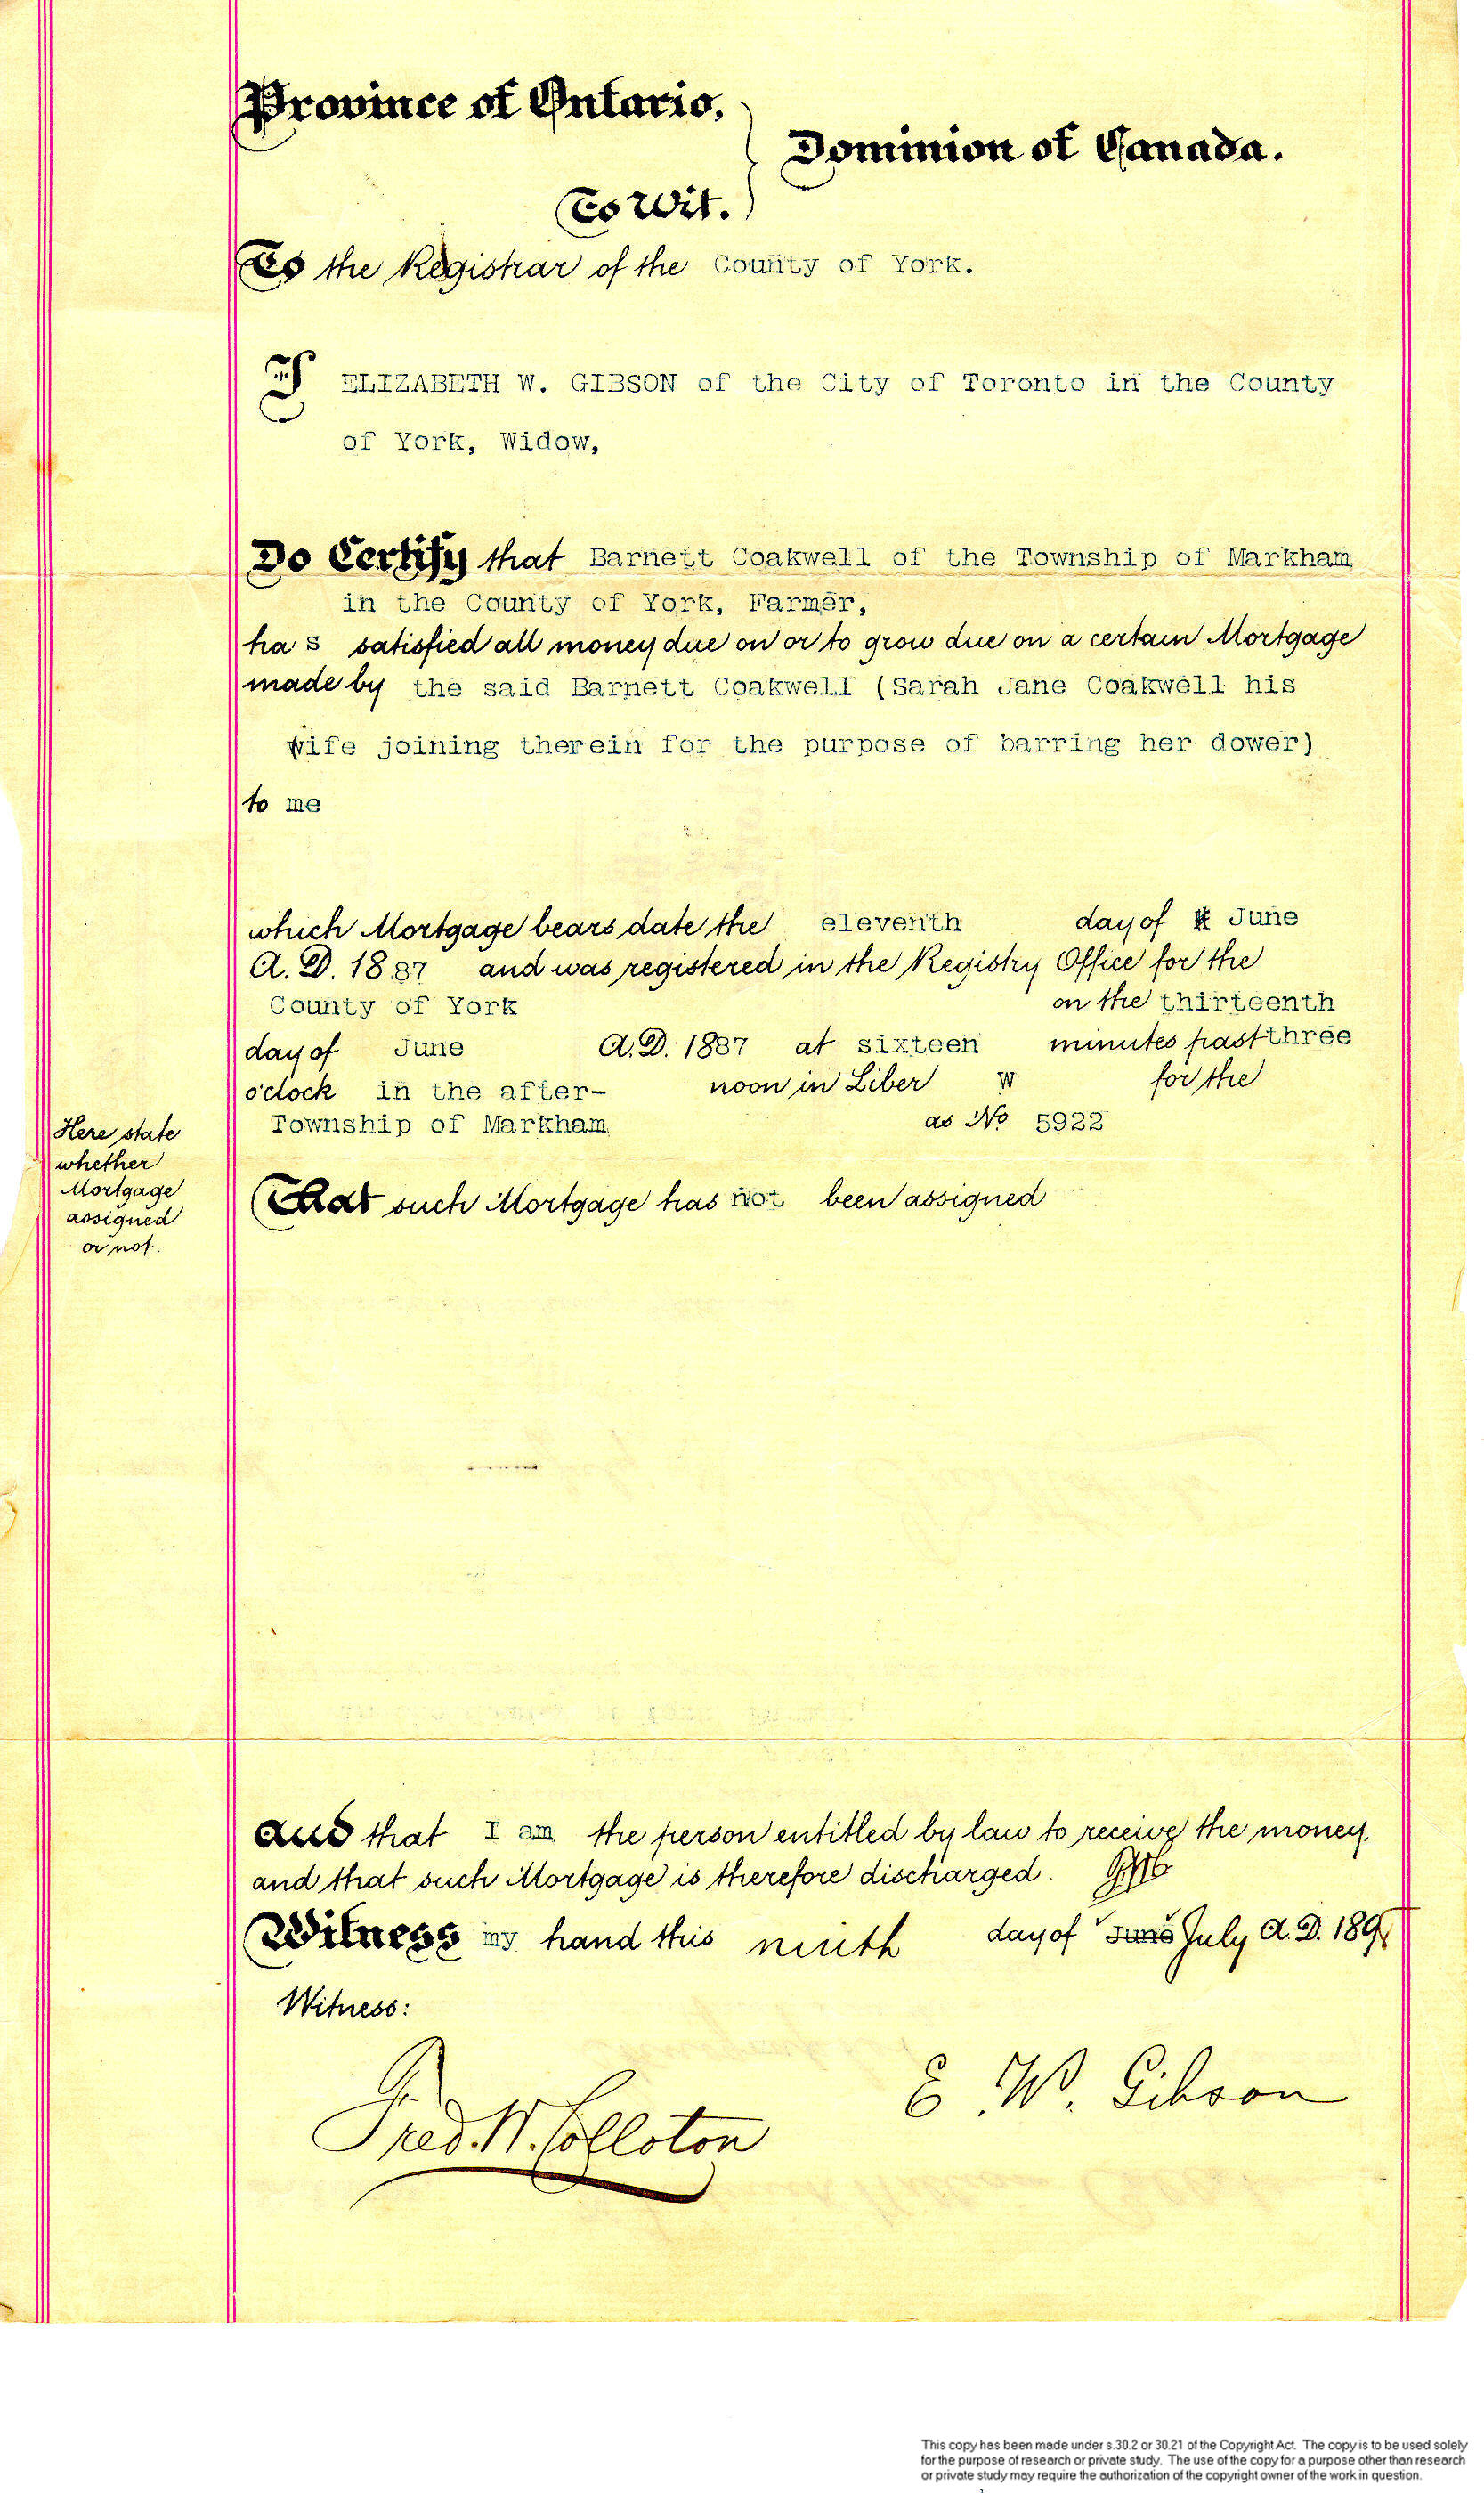 Province of Ontario,
Dominion of Canada.
To Wit.
To the Registrar of the County of York.
I ELIZABETH W. GIBSON of the City of Toronto in the County
of York, Widow,
Do Certify that Barnett Coakwell of the Township of Markham
in the County of York, Farmer,
ha s satisfied all money due on or to grow due on a certain Mortgage
made by the said Barnett Coakwell (Sarah Jane Coakwell his
wife joining therein for the purpose of barring her dower)
to me
which Mortgage bears date the eleventh day of June
A.D. 1887 and was registered in the Registry Office for the
County of York on the thirteenth
day of June A.D. 1887 at sixteen minutes past three
o'clock in the after- noon in Liber W for the
Township of Markham as No 5922
Here state
whether
Mortgage
assigned
or not.
That such Mortgage has not been assigned
And that I am the person entitled by law to receive the money,
and that such Mortgage is therefore discharged.
Witness my hand this ninth day of June July A.D. 189
Witness:
Fred. W. Colloton
E. W. Gibson
This copy has been made under s.30.2 or 30.21 of the Copyright Act. The copy is to be used solely
for the purpose of research or private study. The use of the copy for a purpose other than research
or private study may require the authorization of the copyright owner of the work in question.